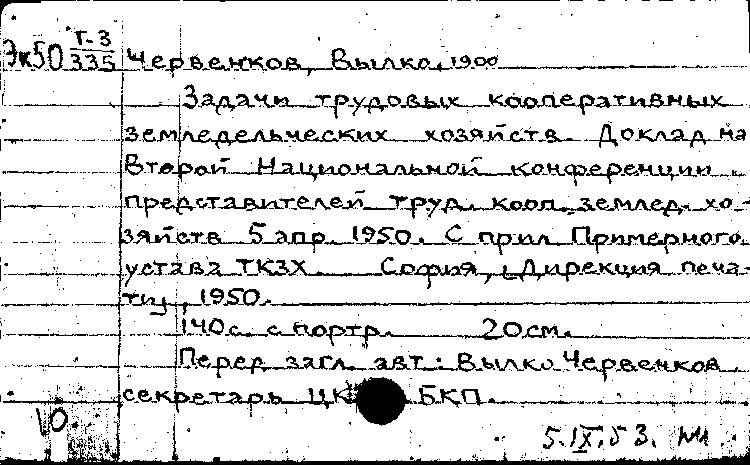 Т-3
Эк50 335 Червенков, Вылко, 1900
Задачи трудовых кооперативных
земледельческих хозяйств. Доклад на
Второй Национальной конференции
представителей труд. кооп. землед. хо-
зяйств 5 апр. 1950. С прил Примерного
устава ТКЗХ. София, Дирекция печа-
ти, 1950.
140 с. с портр. 20см.
Перед загл. авт: Вылко Червенков
секретарь ЦК БКП.
10.
5.IX.53.